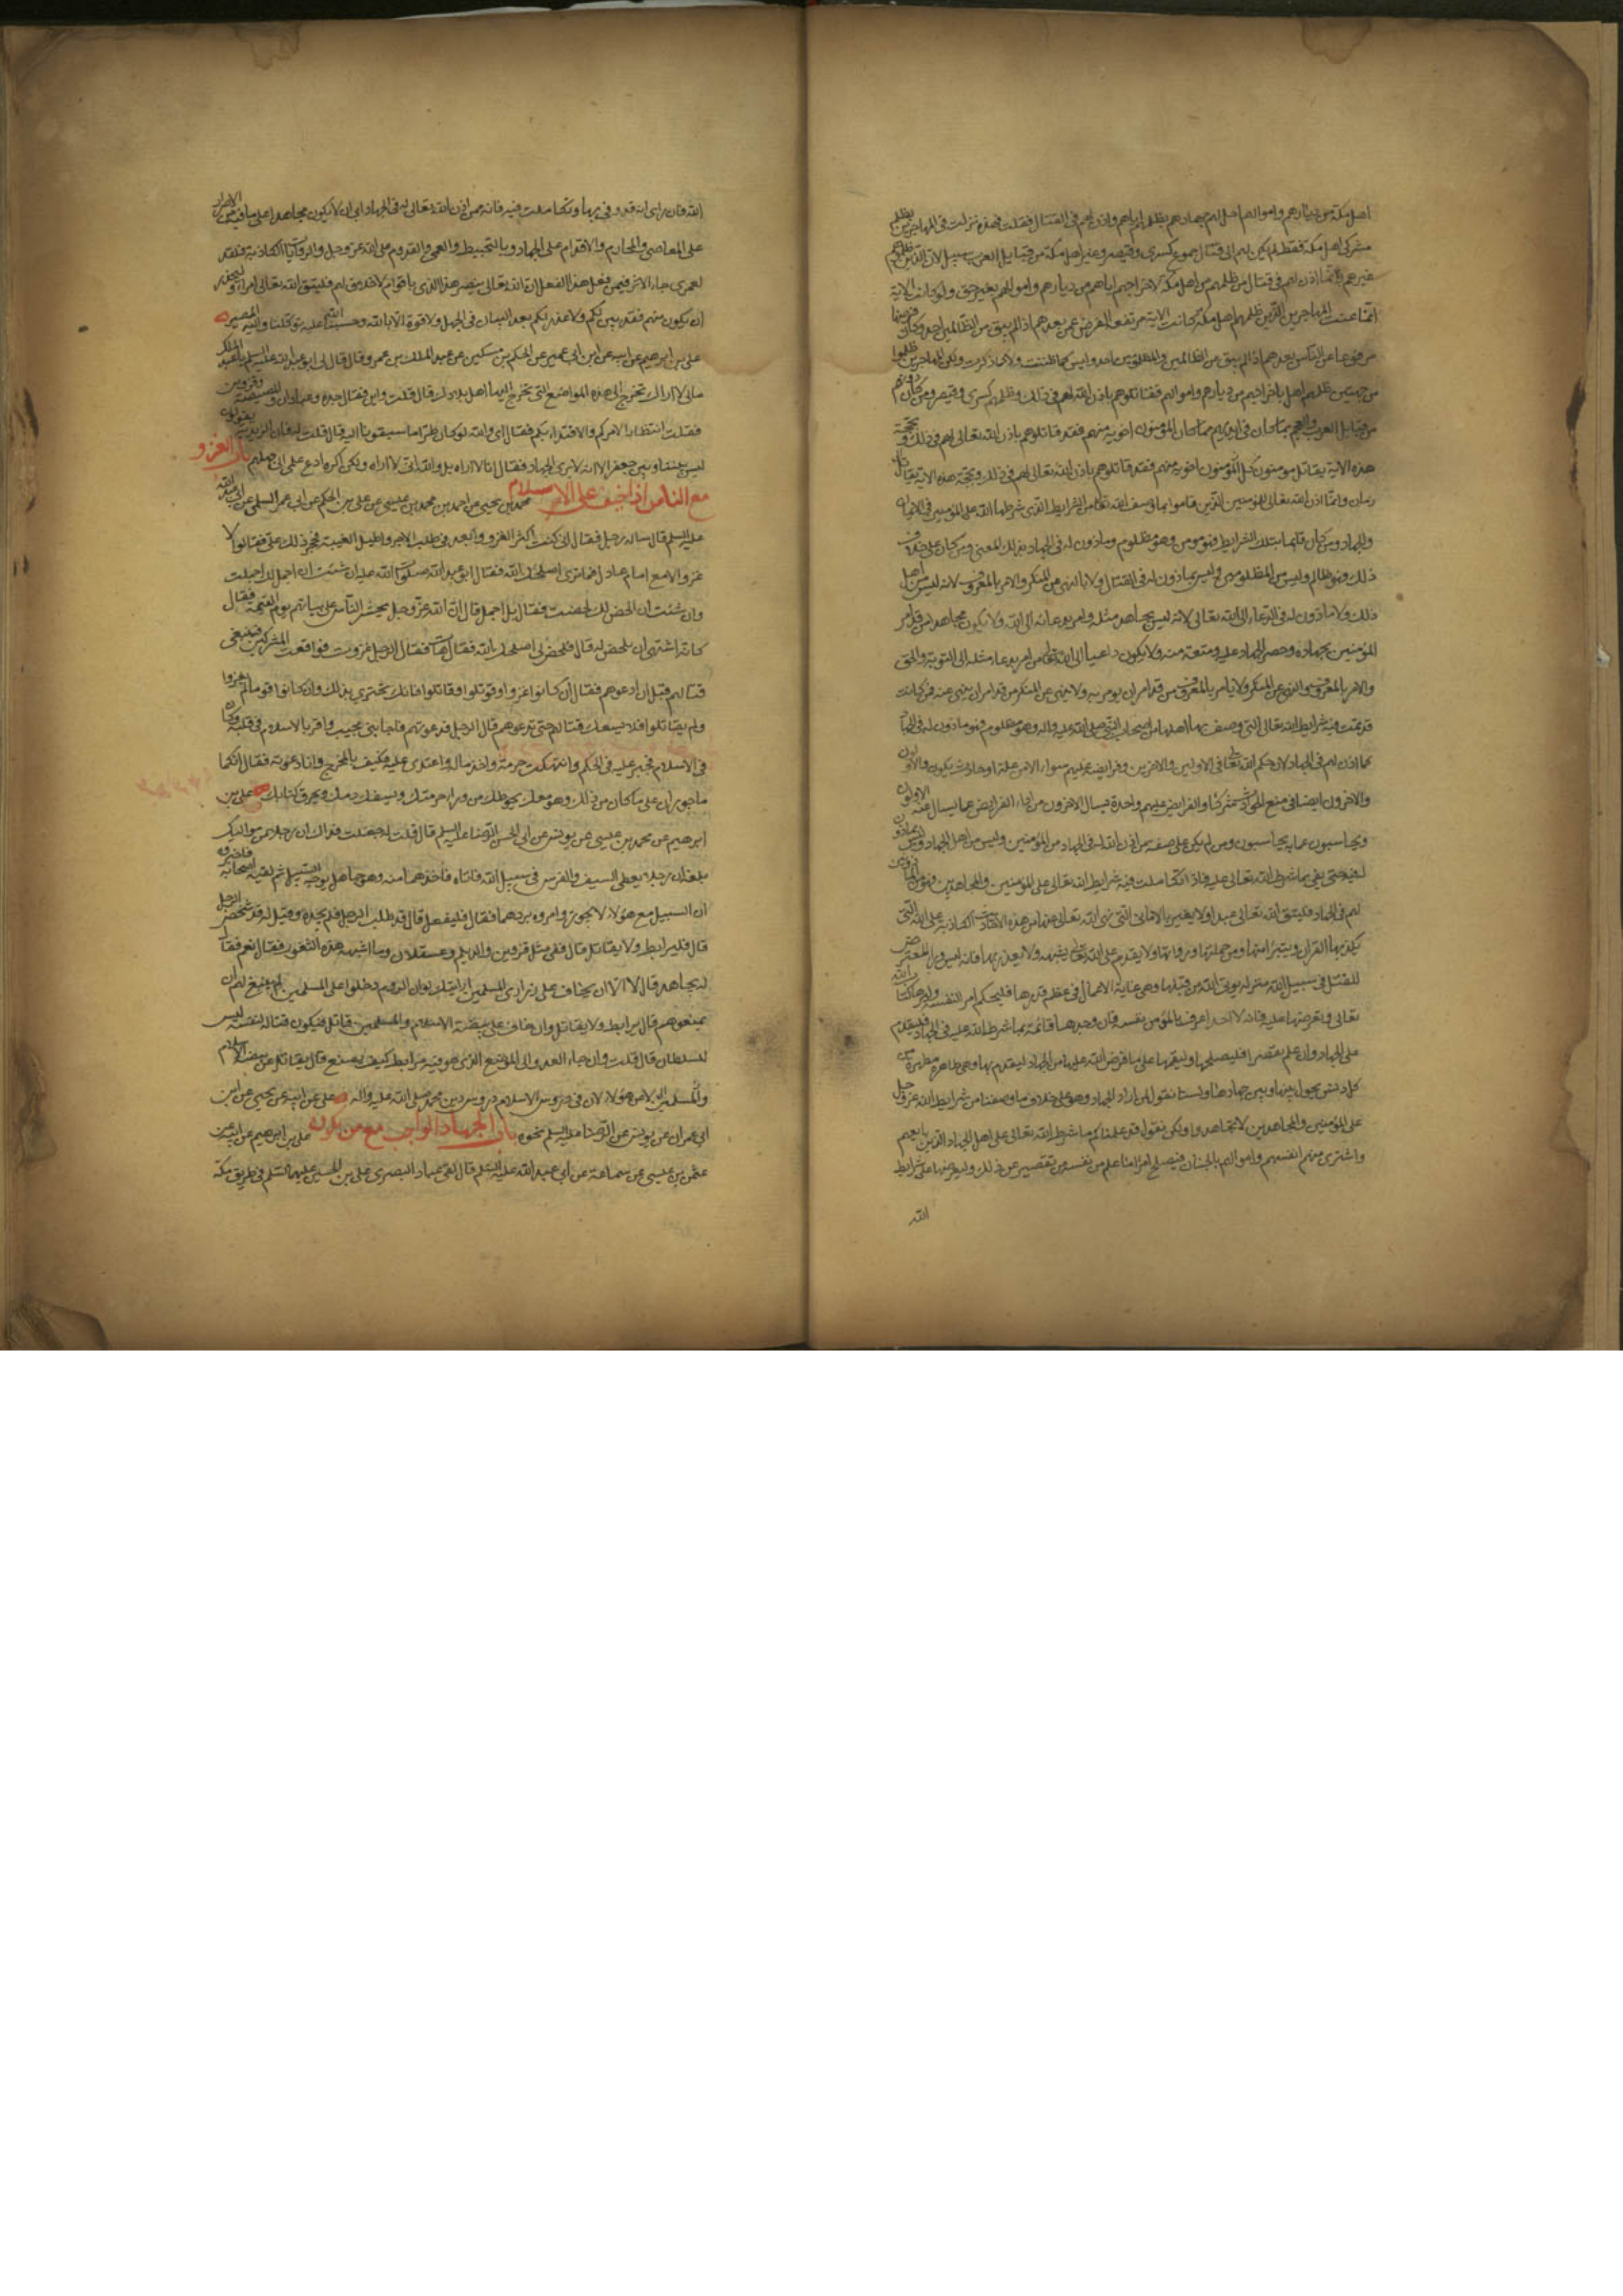 اهل مكة من ديارهم واموالهم احل لهم جهادهم بظلمهم اياهم واذن لهم في القتال فقلت فهذه نزلت في المهاجرين بظلم
مشركي اهل مكة فقط لم يكن لهم الى قتال جموع كسرى وقيصر وغير اهل مكة من قبايل العرب سبيل لان الذين ظلموهم
غيرهم وانما اذن لهم في قتال من ظلمهم من اهل مكة لاخراجهم اياهم من ديارهم واموالهم بغير حق ولو كانت الاية
انما عنت المهاجرين الذين ظلمهم اهل مكة كانت الاية مرتفعة الفرض عمن بعدهم اذ لم يبق من الظالمين احد وكان فرضها
مرفوعا عن الناس بعدهم اذا لم يبق من الظالمين والمظلومين احد وليس كما ظننت ولا كما ذكرت ولكن المهاجرين ظلموا
من جهتين ظلمهم اهل باخراجهم من ديارهم واموالهم فقاتلوهم باذن الله لهم في ذلك وظلمهم كسرى وقيصر ومن كان دونهم
من قبايل العرب والعجم بما كان في ايديهم مما كان المؤمنون احق به منهم فقد قاتلوهم باذن الله تعالى لهم في ذلك وبحجة
هذه الاية يقاتل مؤمنون كل
زمان وانما اذن الله تعالى للمؤمنين الذين قاموا بما وصف الله تعالى من الشرايط التي شرطها الله على المؤمنين في الايمان
والجهاد ومن كان قائما بتلك الشرايط فهو مؤمن وهو مظلوم وماذون له في الجهاد بذلك المعنى ومن كان على خلاف
ذلك فهو ظالم وليس من المظلومين وليس بماذون له في القتال ولا بالنهي عن المنكر والامر بالمعروف لانه ليس من اهل
ذلك ولا ماذون له في الدعاء الى الله تعالى لانه ليس يجاهد مثله وامر بدعائه الى الله ولا يكون مجاهدا من قد امر
المؤمنين بجهاده وحصر الجهاد عليه ومنعه منه ولا يكون داعيا الى الله تعالى من امر بدعاء مثله الى التوبة والحق
والامر بالمعروف والنهي عن المنكر ولا يامر بالمعروف من قد امر ان يؤمر به ولا ينهى عن المنكر من قد امر ان ينهى عنه فمن كانت
قد تمت فيه شرايط الله تعالى التي وصف بها اهلها من اصحاب النبي صلى الله عليه واله وهو مظلوم فهو ماذون له في الجهاد
كما اذن لهم في الجهاد لان حكم الله تعالى في الاولين والاخرين وفرايضه عليهم سواء الا من علة او حادث يكون والاولون
والاخرون ايضا في منع الحوادث شركاء والفرايض عليهم واحدة يسال الاخرون من اداء الفرايض عما يسال عنه الاولون
ويحاسبون عما به يحاسبون ومن لم يكن على صفة من اذن الله له في الجهاد من المؤمنين وليس من اهل الجهاد وليس بماذون
له فيه حتى يفي بما شرط الله تعالى عليه فاذا تكاملت فيه شرايط الله تعالى على المؤمنين والمجاهدين فهو من الماذونين
لهم في الجهاد فليتق الله تعالى عبد ولا يغتر بالاماني التي نهى الله تعالى عنها من هذه الاحاديث الكاذبة على الله التي
يكذبها القران ويتبرا منها ومن حملتها ورواتها ولا يقدم على الله تعالى بشبهة ولا يعذر بها فانه ليس وراء المتعرض
للقتل في سبيل الله منزلة يؤتى الله من قبلها وهي غاية الاعمال في عظم قدرها فليحكم امرء لنفسه وليرها كتاب الله
تعالى ويعرضها عليه فانه لا احد اعرف بالمرء من نفسه فان وجدها قائمة بما شرط الله عليه في الجهاد فليقدم
على الجهاد وان علم تقصيرا فليصلحها وليقمها على ما فرض الله عليها من الجهاد ليقدم بها وهي طاهرة مطهرة من
كل دنس يحول بينها وبين جهادها ولسنا نقول لمن اراد الجهاد وهو على خلاف ما وصفنا من شرايط الله عز وجل
على المؤمنين والمجاهدين لا تجاهدوا ولكن نقول قد علمناكم ما شرط الله تعالى على اهل الجهاد الذين بايعهم
واشترى منهم انفسهم واموالهم بالجنان فيصلح امرء ما علم من نفسه من تقصير عن ذلك وليعرضها على شرايط
الله
الله فان راى انه قد وفى بها وتكاملت فيه فانه ممن اذن الله تعالى له في الجهاد وان ابى ان لا يكون مجاهدا على ما فيه من الاصرار
على المعاصي والمحارم والاقدام على الجهاد بالتخبيط والعمى والقدوم على الله عز وجل والروايات الكاذبة فلقد
لعمري جاء الاثر فيمن فعل هذا الفعل ان الله تعالى ينصر هذا الذي باقوام لا خلاق لهم فليتق الله تعالى امرء وليحذر
ان يكون منهم فقد بين لكم ولا عذر لكم بعد البيان في الجهل ولا قوة الا بالله وحسبنا الله عليه توكلنا واليه المصير
علي بن ابرهيم عن ابيه عن ابن ابي عمير عن الحكم بن مسكين عن عبد الملك بن عمرو قال قال لي ابو عبد الله عليه السلم يا عبد الملك
مالي لا اراك تخرج الى هذه المواضع التي يخرج اليها اهل بلادك قال قلت واين فقال جدة وعبادان والمصيصة وقزوين
فقلت انتظارا لامركم والاقتداء بكم فقال اي والله لو كان خيرا ما سبقونا اليه قال قلت له فان الزيدية يقولون
ليس بيننا وبين جعفر الا انه لا يرى الجهاد فقال انا لا اراه بلى والله اني لاراه ولكن اكره ادع علمي الى جهلهم باب الغزو
مع الناس اذا خيف على الاسلام محمد بن يحيى عن احمد بن محمد بن عيسى عن علي بن الحكم عن ابي عمر السلمي عن ابي عبد الله
عليه السلم قال ساله رجل فقال اني كنت اكثر الغزو وابعد في طلب الاجر واطيل الغيبة فحجر ذلك علي فقالوا لا
غزو الا مع امام عادل فما ترى اصلحك الله فقال ابو عبد الله صلوات الله عليه ان شئت ان اجمل لك اجملت
وان شئت ان الخص لك لخصت فقال بل اجمل قال ان الله عز وجل يحشر الناس على نياتهم يوم القيمة فقال
كانه اشتهى ان يلخص له قال فلخص لي اصلحك الله فقال هات فقال الرجل غزوت فواقعت المشركين فينبغي
قتالهم قبل ان ادعوهم فقال ان كانوا غزوا وقوتلوا وقاتلوا فانك تجتزي بذلك وان كانوا قوما لم يغزوا
ولم يقاتلوا فلا يسعك قتالهم حتى تدعوهم قال الرجل فدعوتهم فاجابني مجيب واقر بالاسلام في قلبه وكان
في الاسلام فجير عليه في الحكم وانتهكت حرمته واخذ ماله واعتدى عليه فكيف بالمخرج وانا دعوته فقال انكما
ماجوران على ما كان من ذلك وهو معك يحوطك من وراء حرمتك ويسفك دمك ويحرق كتابك علي بن
ابرهيم عن محمد بن عيسى عن يونس عن ابي الحسن الرضا عليه السلم قال قلت له جعلت فداك ان رجلا من مواليك
بلغه ان رجلا يعطي السيف والفرس في سبيل الله فاتاه فاخذهما منه وهو جاهل بوجه السبيل ثم لقيه اصحابه فاخبروه
ان السبيل مع هؤلاء لا يجوز وامروه بردهما فقال فليفعل قال قد طلب الرجل فلم يجده وقيل له قد شخص الرجل
قال فليرابط ولا يقاتل قال ففي مثل قزوين والديلم وعسقلان وما اشبه هذه الثغور فقال نعم فقال
له يجاهد قال لا الا ان يخاف على ذراري المسلمين ارايتك لو ان الروم دخلوا على المسلمين لم ينبغ لهم ان
يمنعوهم قال يرابط ولا يقاتل وان خاف على بيضة الاسلام والمسلمين قاتل فيكون قتاله لنفسه ليس
للسلطان قال قلت وان جاء العدو الى الموضع الذي هو فيه مرابط كيف يصنع قال يقاتل عن بيضة الاسلام
لا عن هؤلاء لان في دروس الاسلام دروس دين محمد صلى الله عليه واله علي عن ابيه عن يحيى عن ابن
ابي عمران عن يونس عن الرضا عليه السلم نحوه باب الجهاد الواجب مع من يكون علي بن ابرهيم عن ابيه عن
عثمن بن عيسى عن سماعة عن ابي عبد الله عليه السلم قال لقي عباد البصري علي بن الحسين عليهما السلم في طريق مكة